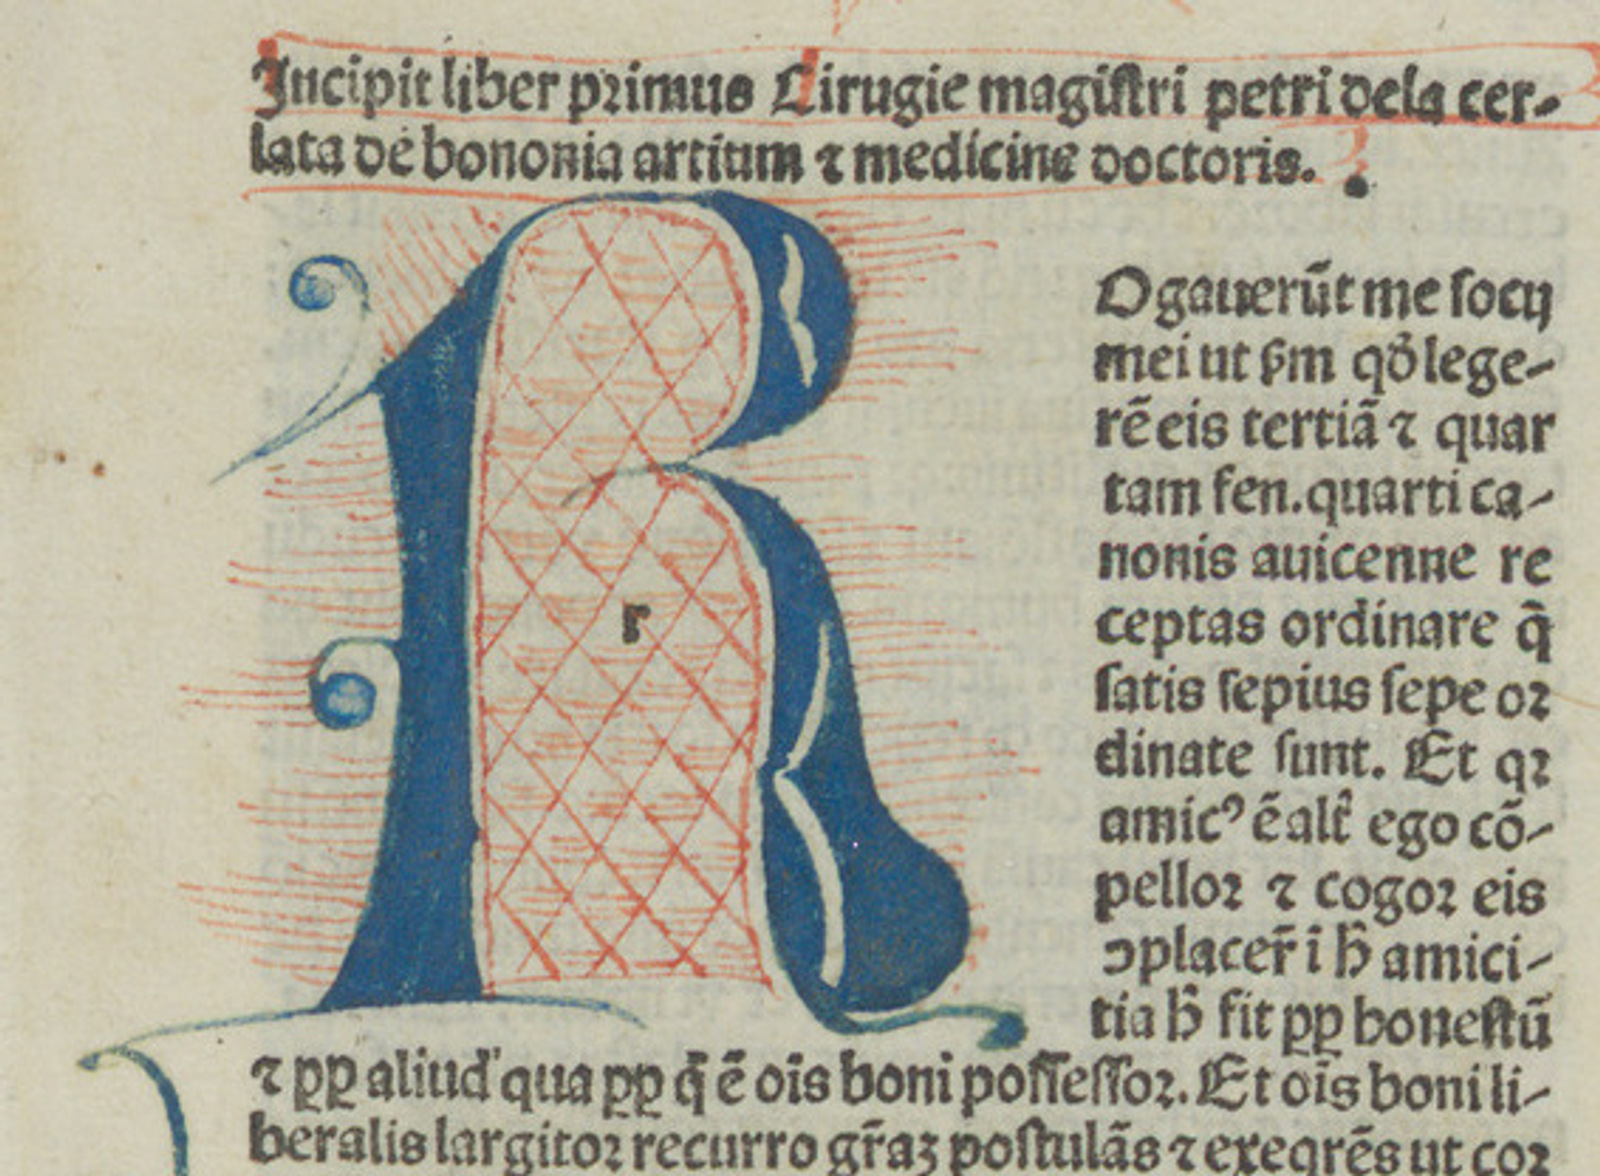 Incipit liber primus Cirugie magistri petri dela cer-
lata de bononia artium ⁊ medicine doctoris.
R
r
Ogauerūt me socij
mei ut ẜm qð lege-
rē eis tertiā ⁊ quar
tam fen. quarti ca-
nonis auicenne re
ceptas ordinare q̄
satis sepius sepe or
dinate sunt. Et qꝛ
amicꝰ ē alt̄ ego cō-
pellor ⁊ cogor eis
ↄplacer̄ ī h̄ amici-
tia h̄ fit ꝓp honestū
⁊ ꝓp aliud qua ꝓp q̄ ē ois boni possessor. Et ois boni li-
beralis largitor recurro gr̄aꝫ postulās ⁊ exeqr̄es ut cor